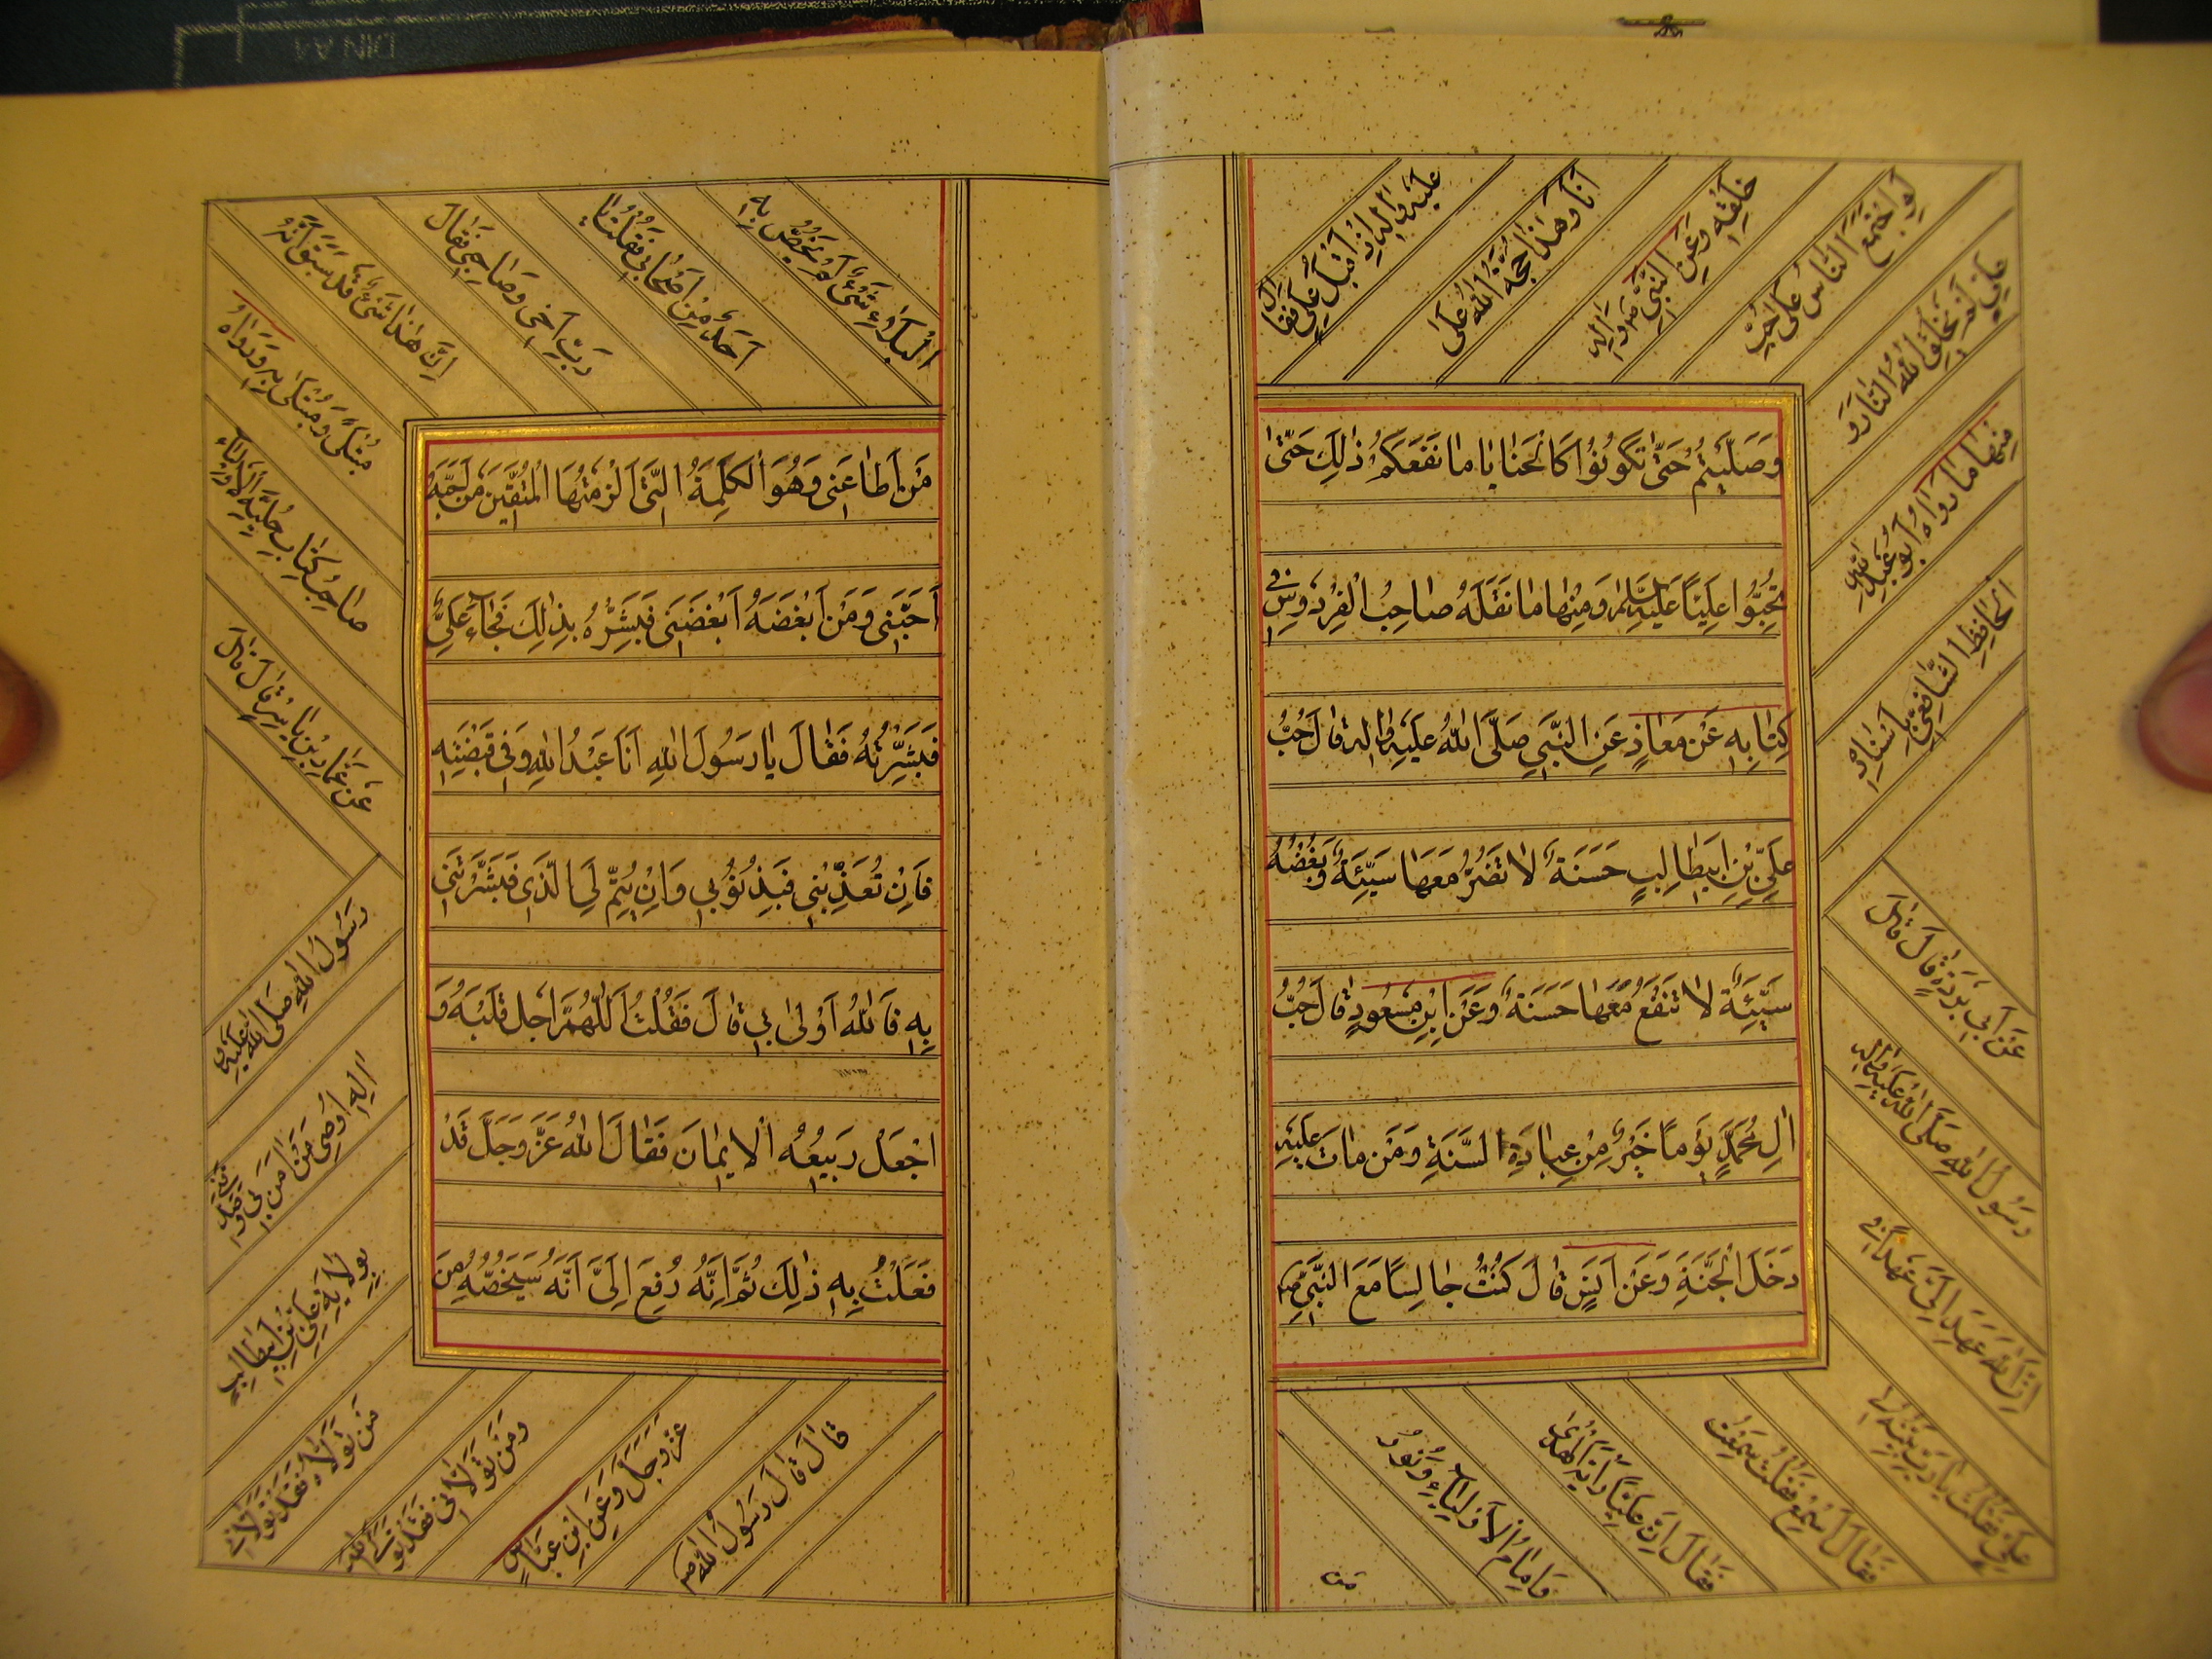 وَصَلَّيْتُمْ حَتّىٰ تَكُونُوا كَالْحَنٰايٰا مٰا نَفَعَكُمْ ذٰلِكَ حَتّىٰ
تُحِبُّوا عَلِيّاً عَلَيْهِ السَّلٰمُ وَمِنْهٰا مٰا نَقَلَهُ صٰاحِبُ الْفِرْدَوْسِ فِي
كِتٰابِهِ عَنْ مَعٰاذٍ عَنِ النَّبِيِّ صَلَّى اللهُ عَلَيْهِ وَاٰلِهِ قٰالَ حُبُّ
عَلِيِّ بْنِ ابيطٰالِبٍ حَسَنَةٌ لاٰ تَضُرُّ مَعَهٰا سَيِّئَةٌ وَبُغْضُهُ
سَيِّئَةٌ لاٰ تَنْفَعُ مَعَهٰا حَسَنَةٌ وَعَنْ ابْنِ مَسْعُودٍ قٰالَ حُبُّ
اٰلِ مُحَمَّدٍ يَوْماً خَيْرٌ مِنْ عِبٰادَةِ السَّنَةِ وَمَنْ مٰاتَ عَلَيْهِ
دَخَلَ الْجَنَّةَ وَعَنْ اَنَسٍ قٰالَ كُنْتُ جٰالِساً مَعَ النَّبِيِّ ص
عليه واله اذ اقبل علي فقال
انا وهذا حجة الله على
خلقه وعن النبي ص واله
لو اجتمع الناس على حب
علي لم يخلق الله النار و
منها ما رواه ابو عبد الله
الحافظ الشافعي باسناده
عن ابي بردة قال قال
رسول الله صلى الله عليه واله
ان الله عهد الي عهدا في
علي فقلت يا رب بينه لي
فقال اسمع فقلت سمعت
فقال ان عليا راية الهدى
وامام الاولياء ونور
من
مَنْ اَطٰاعَنِي وَهُوَ الْكَلِمَةُ الَّتِي اَلْزَمْتُهَا الْمُتَّقِينَ مَنْ اَحَبَّهُ
اَحَبَّنِي وَمَنْ اَبْغَضَهُ اَبْغَضَنِي فَبَشِّرْهُ بِذٰلِكَ فَجٰاءَ عَلِيٌّ
فَبَشَّرْتُهُ فَقٰالَ يٰا رَسُولَ اللهِ اَنَا عَبْدُ اللهِ وَفِي قَبْضَتِهِ
فَاِنْ تُعَذِّبْنِي فَبِذُنُوبِي وَاِنْ يُتِمَّ لِيَ الَّذِي فَبَشَّرْتَنِي
بِهِ فَاللهُ اَوْلىٰ بِي قٰالَ فَقُلْتُ اَللّٰهُمَّ اَجْلِ قَلْبَهُ وَ
اجْعَلْ رَبِيعُهُ الاِيمٰانَ فَقٰالَ اللهُ عَزَّ وَجَلَّ قَدْ
فَعَلْتُ بِهِ ذٰلِكَ ثُمَّ اِنَّهُ رُفِعَ اِلَيَّ اَنَّهُ سَيَخُصُّهُ مِنَ
البلاء بشيء لم يخص به
احد من اصحابي فقلت يا
رب اخي وصاحبي فقال
ان هذا شيء قد سبق انه
مبتلى ومبتلى به ورواه
صاحب كتاب حلية الاولياء
عن عمار بن ياسر قال قال
رسول الله صلى الله عليه و
اله اوصي من امن بي وصدقني
بولاية علي بن ابيطالب
من تولاه فقد تولاني
ومن تولاني فقد تولى الله
عز وجل وعن ابن عباس
قال قال رسول الله ص